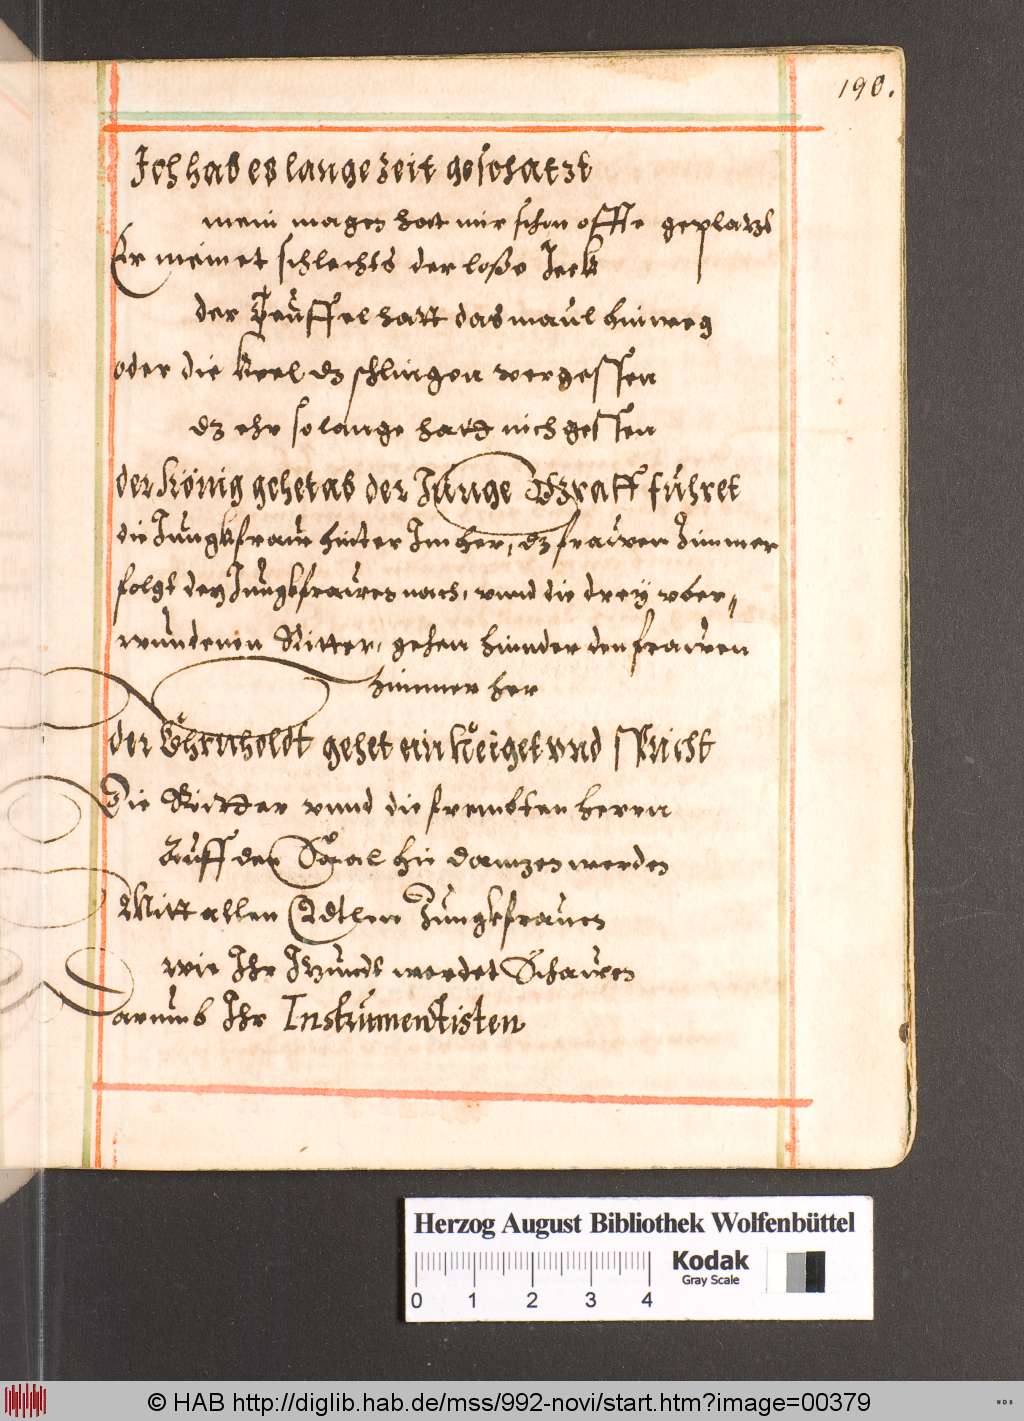 190.
Ich hab es lange zeit geschatzt
mein magen hat mir schon offte geplatzt
Er meinet schlechts der lose Jeck
der Teuffel hatt das maul hinweg
oder die Keel dz schlingen vergessen
dz ehr so lange hatt nich gessen
der König gehet ab der Junge Graff führet
die Jungkfraw hinter Im her, dz frawen Zimmer
folgt den Jungkfrawen nach, vnnd die drey vber„
wundenen Ritter, gehen hinnder den frawen
himmer her
der Ehrnholdt gehet ein Neiget vnd spricht
Die Ritter vnnd die frembten herrn
Auff den Saal hie dantzen werden
Mitt allen Edtlen Jungkfrauen
wie Ihr Itzundt werdet Schawen
arumb Ihr Instrumentisten
Herzog August Bibliothek Wolfenbüttel
Kodak
Gray Scale
0 1 2 3 4
© HAB http://diglib.hab.de/mss/992-novi/start.htm?image=00379